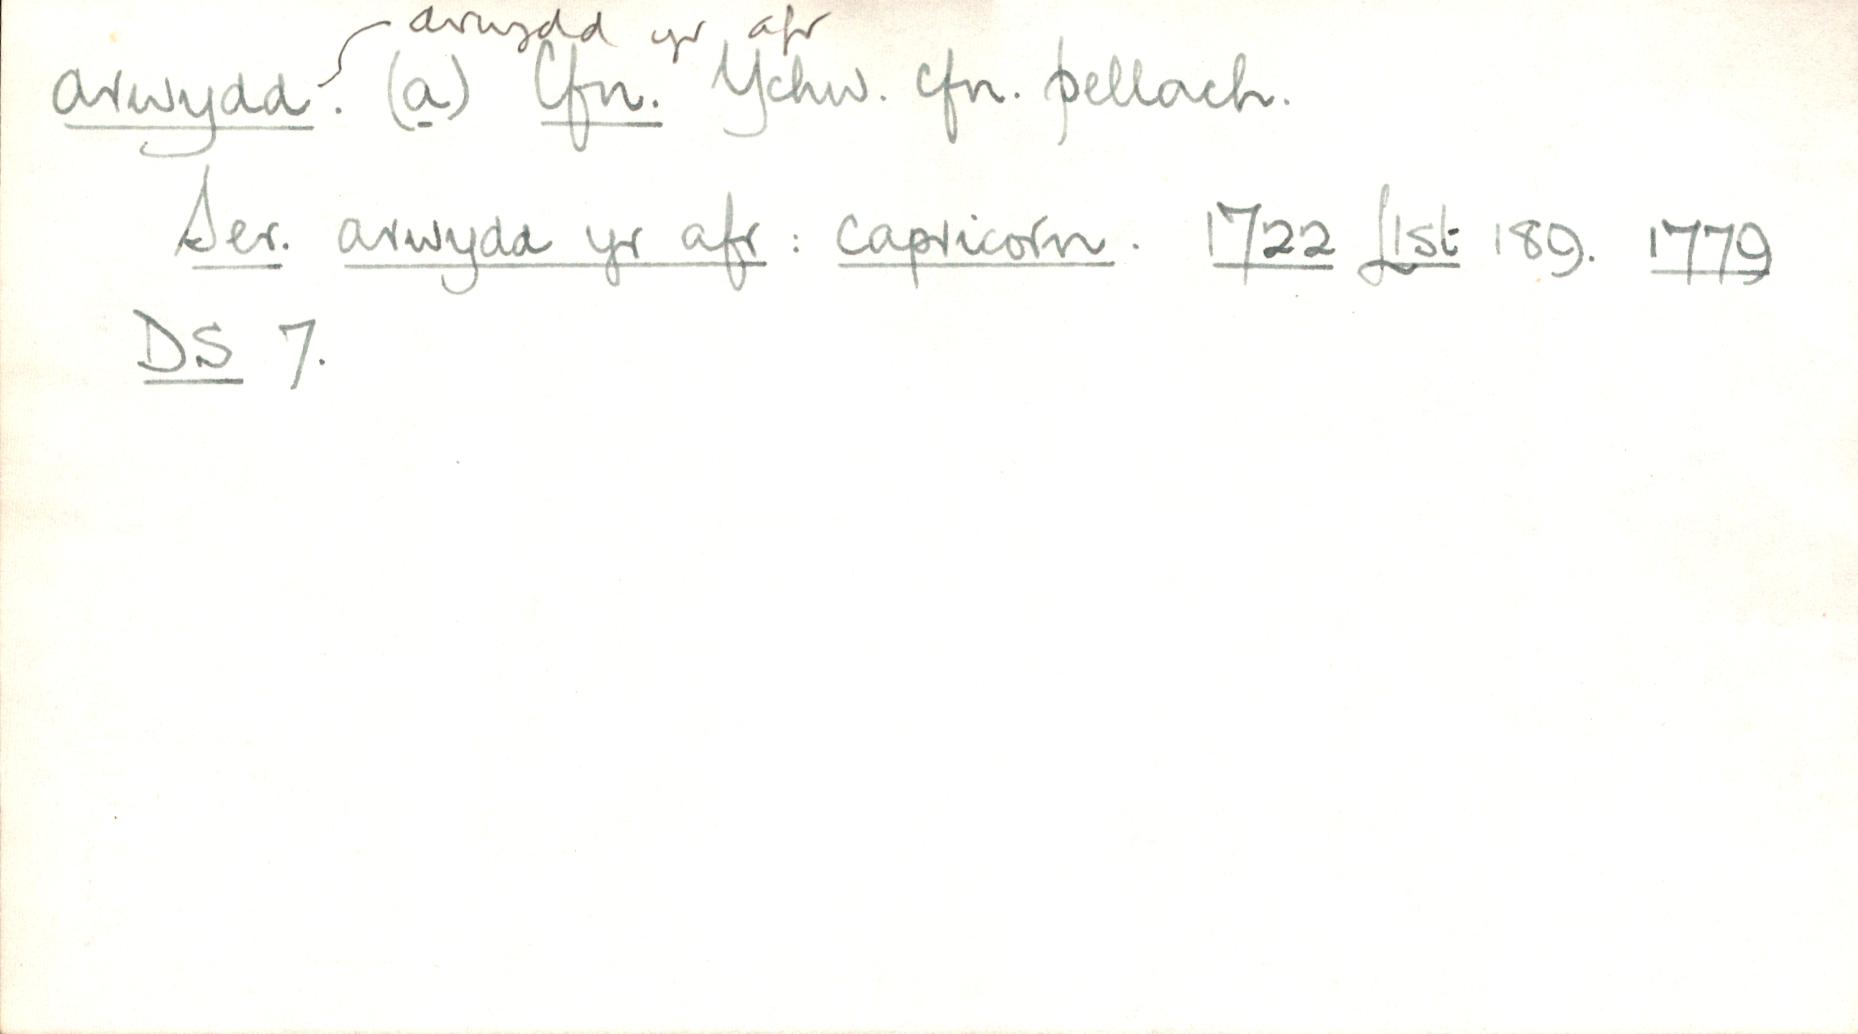 arwydd yr afr
arwydd. (a) Cfn. Ychw. cfn. pellach.
Ser. arwydd yr afr: capricorn. 1722 Llst 189. 1779
DS 7.